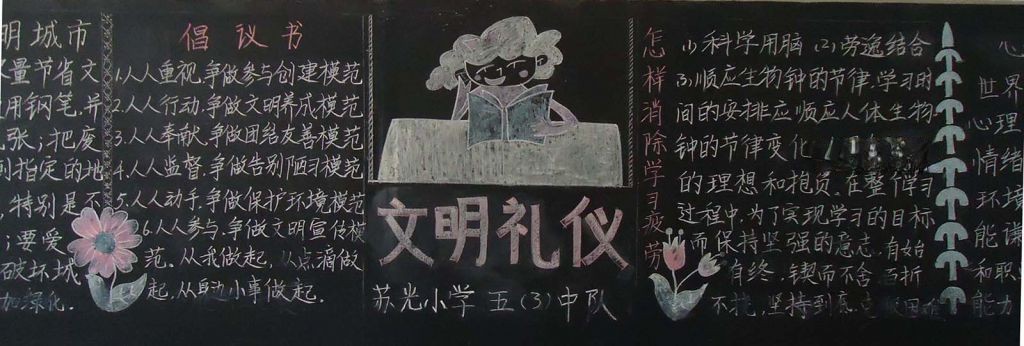 明城市
量节省文
用钢笔,并
张;把废
到指定的地
,特别是不
;要爱
破坏城
加绿化.
倡议书
1.人人重视,争做参与创建模范
2.人人行动,争做文明养成模范
3.人人奉献,争做团结友善模范
4.人人监督,争做告别陋习模范
5.人人动手,争做保护环境模范
6.人人参与,争做文明宣传模
范。从我做起,从点滴做
起,从身边小事做起.
文明礼仪
苏光小学 五(3)中队
怎样消除学习疲劳
(1)科学用脑 (2)劳逸结合
3,顺应生物钟的节律,学习时
间的安排应顺应人体生物
钟的节律变化
的理想和抱负,在整个学习
过程中,为了实现学习的目标
而保持坚强的意志,有始
有终,锲而不舍,百折
不挠,坚持到底,克服困难
心
世界
心理
情绪
环境
能谋
和职
能力